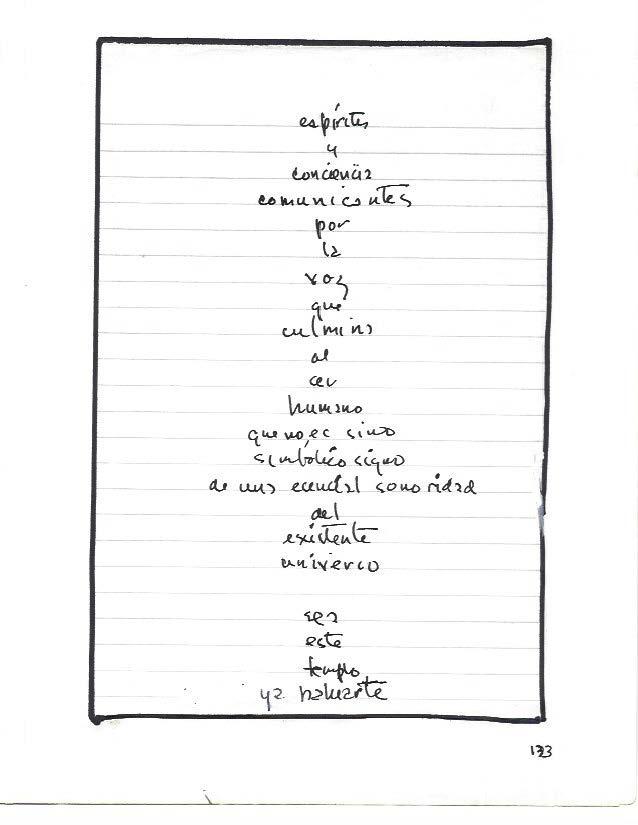 espíritus
y
conciencias
comunicantes
por
la
voz
que
culmina
al
cer
humano
que no, es sino
simbólico signo
de una ecencial sonoridad
del
existente
univerco

sea
este
templo
ya baluarte
133